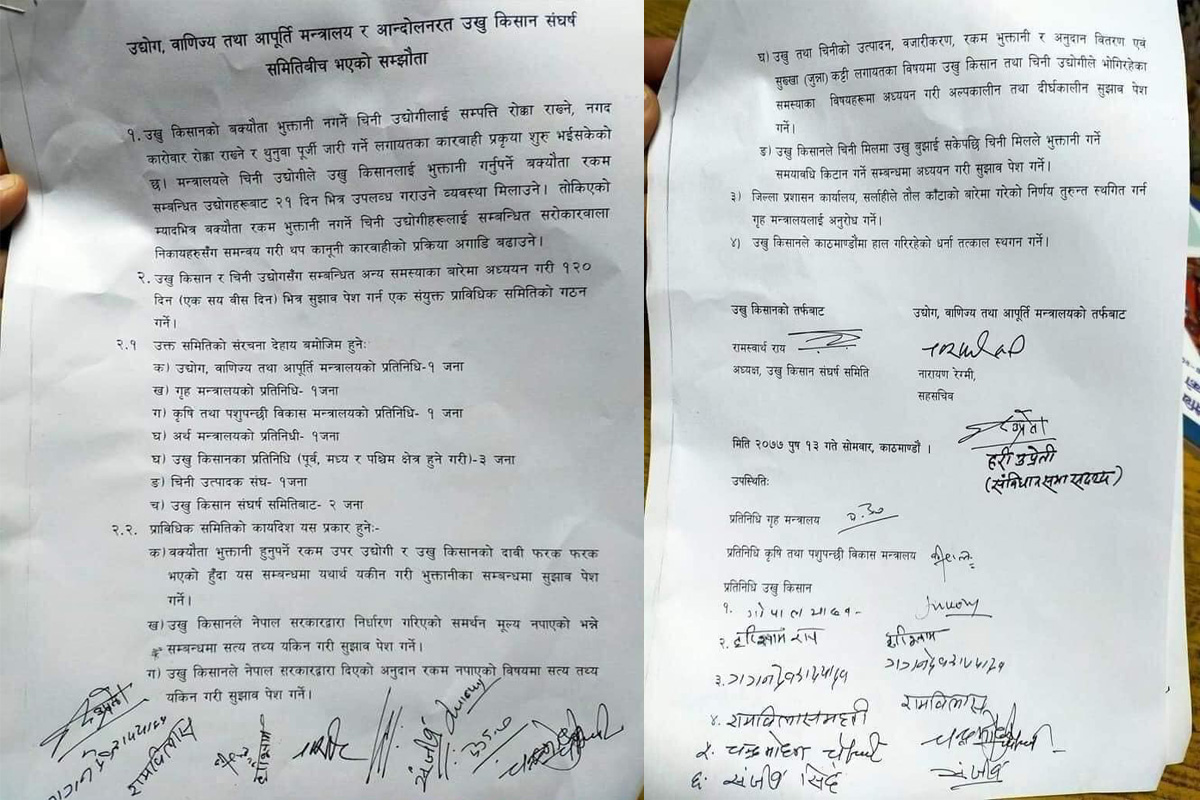 उद्योग, वाणिज्य तथा आपूर्ति मन्त्रालय र आन्दोलनरत उखु किसान संघर्ष
समितिबीच भएको सम्झौता
१. उखु किसानको बक्यौता भुक्तानी नगर्ने चिनी उद्योगीलाई सम्पत्ति रोक्का राख्ने, नगद
कारोवार रोक्का राख्ने र थुनुवा पूर्जी जारी गर्ने लगायतका कारवाही प्रकृया शुरु भईसकेको
छ। मन्त्रालयले चिनी उद्योगीले उखु किसानलाई भुक्तानी गर्नुपर्ने बक्यौता रकम
सम्बन्धित उद्योगहरूबाट २१ दिन भित्र उपलब्ध गराउने व्यवस्था मिलाउने। तोकिएको
म्यादभित्र बक्यौता रकम भुक्तानी नगर्ने चिनी उद्योगीहरूलाई सम्बन्धित सरोकारवाला
निकायहरुसँग समन्वय गरी थप कानूनी कारवाहीको प्रक्रिया अगाडि बढाउने।
२. उखु किसान र चिनी उद्योगसँग सम्बन्धित अन्य समस्याका बारेमा अध्ययन गरी १२०
दिन (एक सय बीस दिन) भित्र सुझाव पेश गर्न एक संयुक्त प्राविधिक समितिको गठन
गर्ने।
२.१ उक्त समितिको संरचना देहाय बमोजिम हुनेः
क) उद्योग, वाणिज्य तथा आपूर्ति मन्त्रालयको प्रतिनिधि-१ जना
ख) गृह मन्त्रालयको प्रतिनिधि- १जना
ग) कृषि तथा पशुपन्छी विकास मन्त्रालयको प्रतिनिधि- १ जना
घ) अर्थ मन्त्रालयको प्रतिनिधी- १जना
घ) उखु किसानका प्रतिनिधि (पूर्व, मध्य र पश्चिम क्षेत्र हुने गरी)-३ जना
ङ) चिनी उत्पादक संघ- १जना
च) उखु किसान संघर्ष समितिबाट- २ जना
२.२. प्राविधिक समितिको कार्यदेश यस प्रकार हुनेः-
क) बक्यौता भुक्तानी हुनुपर्ने रकम उपर उद्योगी र उखु किसानको दाबी फरक फरक
भएको हुँदा यस सम्बन्धमा यथार्थ यकीन गरी भुक्तानीका सम्बन्धमा सुझाव पेश
गर्ने।
ख) उखु किसानले नेपाल सरकारद्वारा निर्धारण गरिएको समर्थन मूल्य नपाएको भन्ने
सम्बन्धमा सत्य तथ्य यकिन गरी सुझाव पेश गर्ने।
ग) उखु किसानले नेपाल सरकारद्वारा दिएको अनुदान रकम नपाएको विषयमा सत्य तथ्य
यकिन गरी सुझाव पेश गर्ने।
रामविलास
घ) उखु तथा चिनीको उत्पादन, वजारीकरण, रकम भुक्तानी र अनुदान वितरण एवं
सुख्खा (जुन्ना) कट्टी लगायतका विषयमा उखु किसान तथा चिनी उद्योगीले भोगिरहेका
समस्याका विषयहरूमा अध्ययन गरी अल्पकालीन तथा दीर्घकालीन सुझाव पेश
गर्ने।
ङ) उखु किसानले चिनी मिलमा उखु बुझाई सकेपछि चिनी मिलले भुक्तानी गर्ने
समयावधि किटान गर्ने सम्बन्धमा अध्ययन गरी सुझाव पेश गर्ने।
३) जिल्ला प्रशासन कार्यालय, सर्लाहीले तौल काँटाको बारेमा गरेको निर्णय तुरुन्त स्थगित गर्न
गृह मन्त्रालयलाई अनुरोध गर्ने।
४) उखु किसानले काठमाण्डौमा हाल गरिरहेको धर्ना तत्काल स्थगन गर्ने।
उखु किसानको तर्फबाट
रामस्वार्थ राय
अध्यक्ष, उखु किसान संघर्ष समिति
उद्योग, वाणिज्य तथा आपूर्ति मन्त्रालयको तर्फबाट
नारायण रेग्मी,
सहसचिव
हरी उप्रेती
(संविधानसभा सदस्य)
मिति २०७७ पुष १३ गते सोमवार, काठमाण्डौ।
उपस्थितिः
प्रतिनिधि गृह मन्त्रालय
प्रतिनिधि कृषि तथा पशुपन्छी विकास मन्त्रालय
प्रतिनिधि उखु किसान
१. गोपाल यादव
२. हरिश्याम राय हरिश्याम
३.
४. रामविलास महतो रामविलास
५. चन्द्रमोहन चौधरी
६. संजीव सिंह संजीव